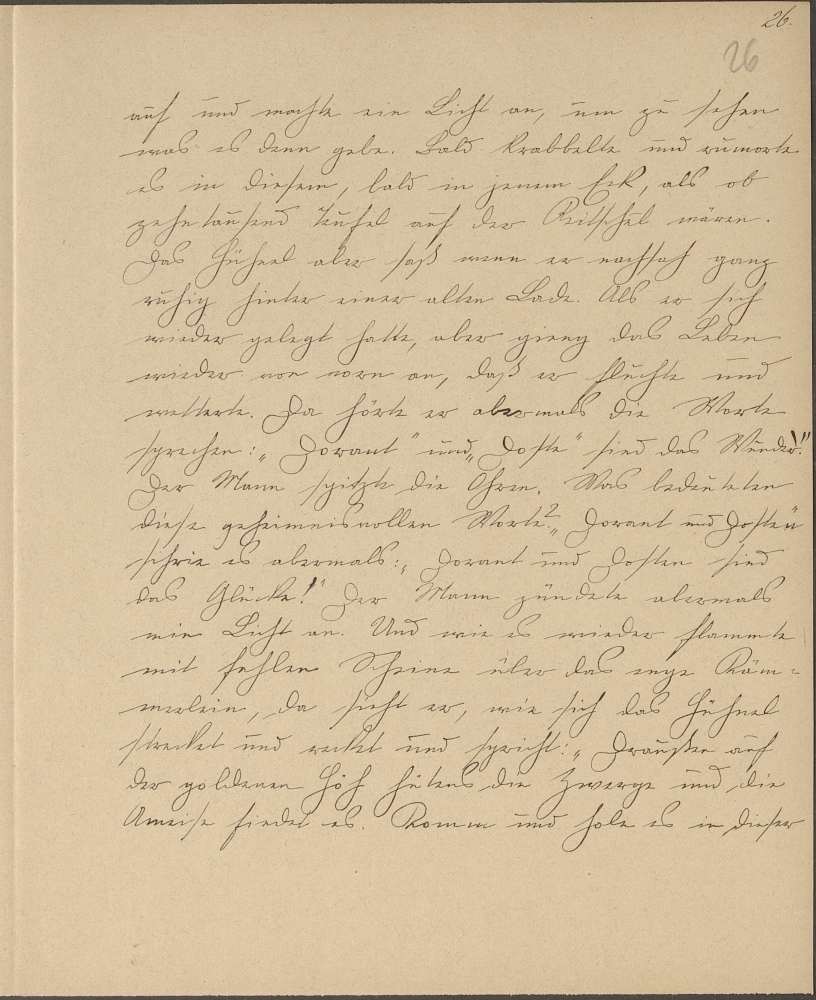 26.
26
auf und machte ein Licht an, um zu sehen
was es denn gebe. Bald krabbelte und rumorte
es in diesem, bald in jenem Eck, als ob
zehntausend Teufel auf der Reitschel wären.
Das Hühnel aber saß wenn er nachsah ganz
ruhig hinter einer alten Lade. Als er sich
wieder gelegt hatte, aber gieng das Leben
wieder von vorn an, daß er fluchte und
wetterte. Da hörte er abermals die Worte
sprechen: „Dorant" und „Doste" sind das Wunder!"
Der Mann spitzte die Ohren. Was bedeuteten
diese geheimnisvollen Worte? „Dorant und Dosten"
schrie es abermals: „Dorant und Dosten sind
das Glücke!" Der Mann zündete abermals
ein Licht an. Und wie es wieder flammte
mit fahlen Scheine über das enge Käm=
merlein, da sieht er, wie sich das Hühnel
strecket und recket und spricht: „Draußen auf
der goldenen Höh hütens die Zwerge und die
Ameise findet es. Komm und hole es in dieser